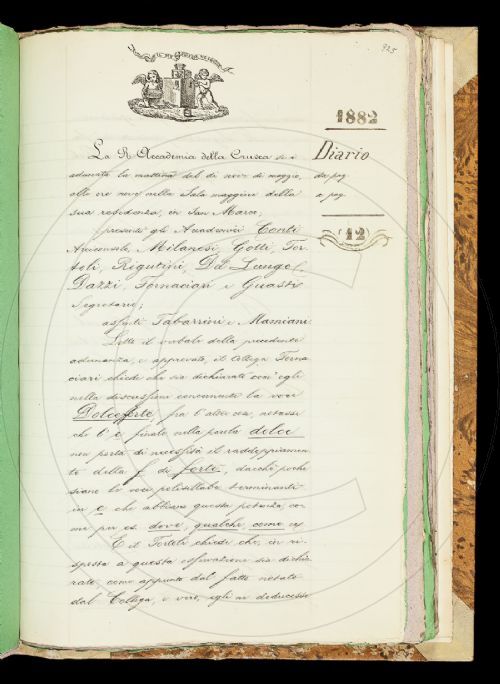 925
1882
Diario
da pag
a pag
12
La R. Accademia della Crusca si è
adunata la mattina del dì nove di maggio,
alle ore nove nella Sala maggiore della
sua residenza, in San Marco;
presenti gli Accademici Conti
Arciconsolo, Milanesi, Gotti, Tor-
toli, Rigutini, Del Lungo,
Dazzi, Fornaciari e Guasti
Segretario;
assenti Tabarrini e Mamiani.
Letto il verbale della precedente
adunanza, e approvato, il Collega Forna
ciari chiede che sia dichiarato com' egli
nella discussione concernente la voce
Dolceforte fra l'altre cose, notasse
che l' e finale nella parola dolce
non porta di necessità il raddoppiamen
to della f di forte, dacchè poche
siano le voci polisillabe terminanti
in e che abbiano questa potenza, co-
me per es. dove, qualche, come ec.
E il Tortoli chiede che, in ri-
sposta a questa osservazione sia dichia
rato, come appunto dal fatto notato
dal Collega, e vero, egli ne deducesse